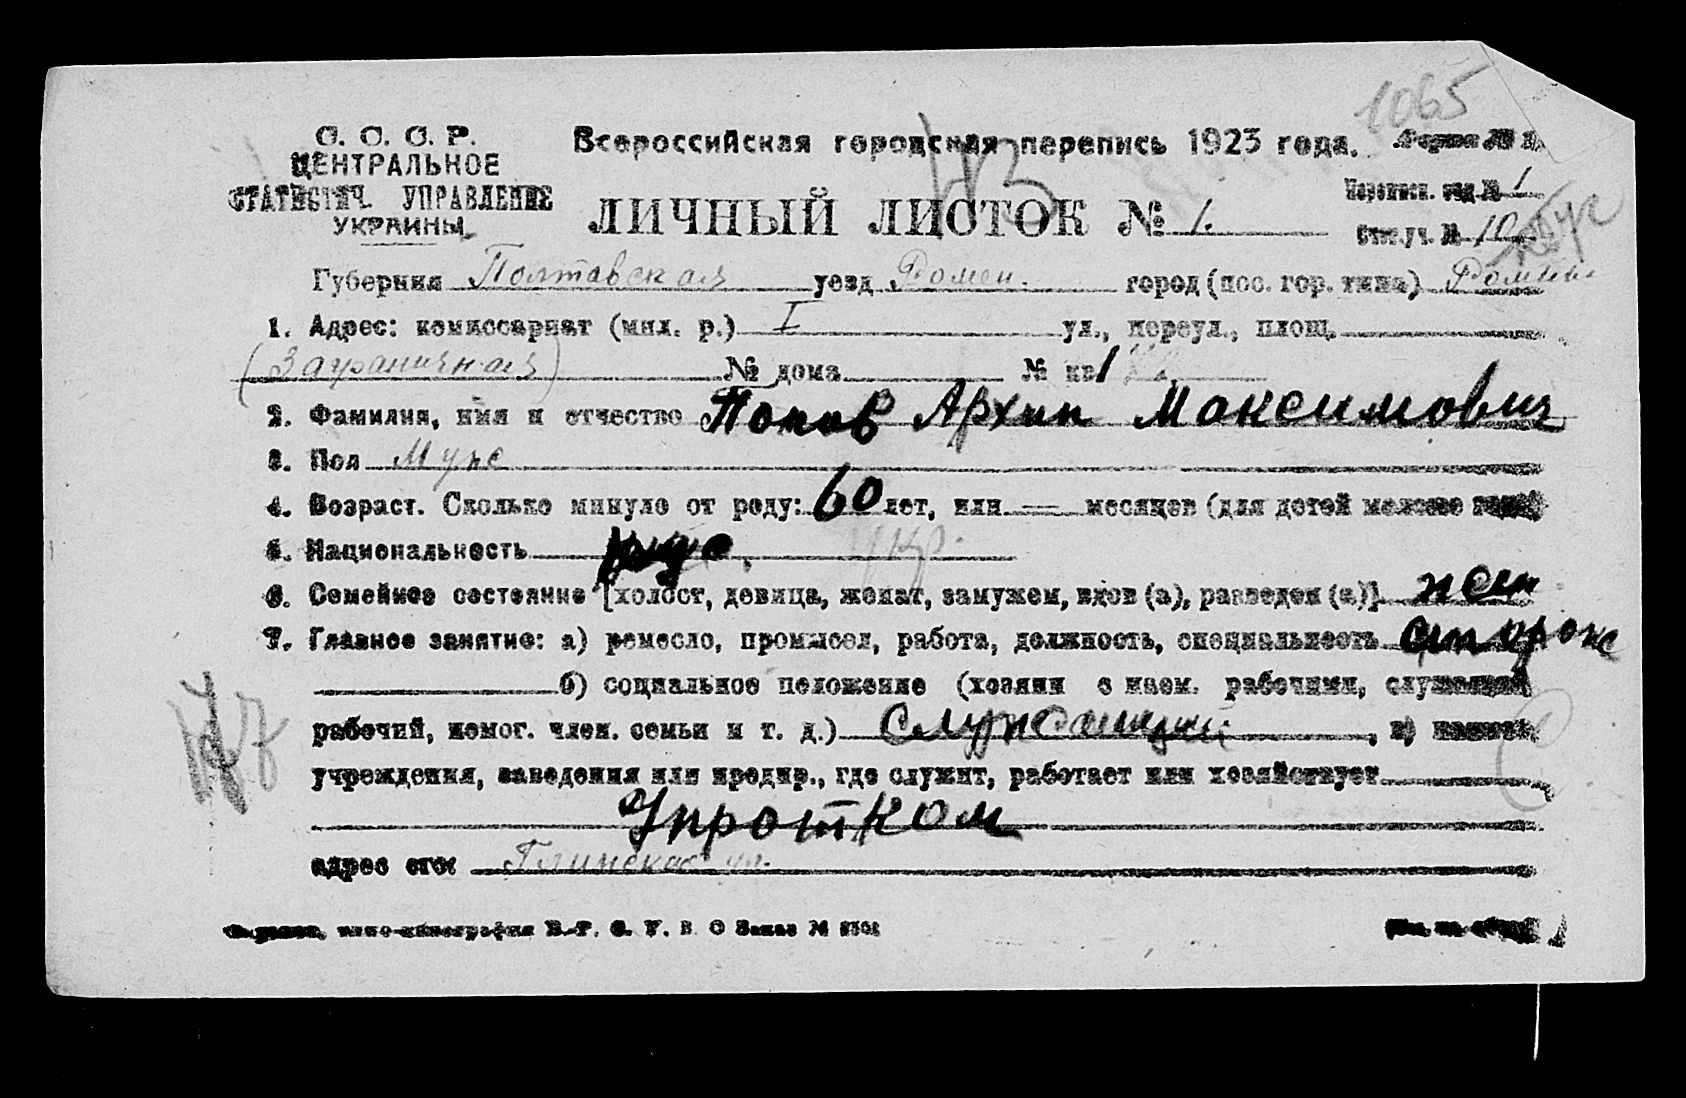 1065
С. С. С. Р.
ЦЕНТРАЛЬНОЕ
СТАТИСТИЧ. УПРАВЛЕНИЕ
УКРАИНЫ.
Всероссийская городская перепись 1923 года. Форма №
ЛИЧНЫЙ ЛИСТОК № 1.
Переписн. отд. № 1
Счетн. уч. № 10
Губерния Полтавская уезд Ромен. город (пос. гор. типа) Ромны
1. Адрес: комиссариат (мил. р.) I ул., переул., площ.
(Заграничная) № дома № кв 1
2. Фамилия, имя и отчество Попов Архип Максимович
3. Пол Муж
4. Возраст. Сколько минуло от роду: 60 лет, или — месяцев (для детей моложе года)
5. Национальность рус. укр.
6. Семейное состояние [холост, девица, женат, замужем, вдов (а), разведен (а)] жен
7. Главное занятие: а) ремесло, промысел, работа, должность, специальность сторож
б) социальное положение (хозяин с наем. рабочими, служащий
рабочий, помог. член. семьи и т. д.) Служащий, в)
учреждения, заведения или предпр., где служит, работает или хозяйствует
Упротком
адрес его: Глинская ул.
типо-цинкография В.-Р. С. У. В. О Заказ №